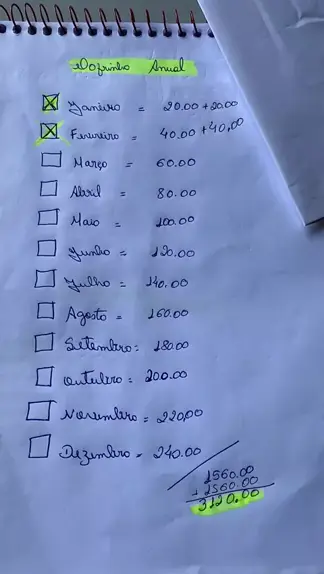 Cofrinho Anual
Janeiro = 20.00 + 20.00
Fevereiro = 40.00 + 40,00
Março = 60.00
Abril = 80.00
Maio = 100.00
Junho = 120.00
Julho = 140.00
Agosto = 160.00
Setembro = 180.00
Outubro = 200.00
Novembro = 220,00
Dezembro = 240.00
1560.00
+ 1560.00
3120.00